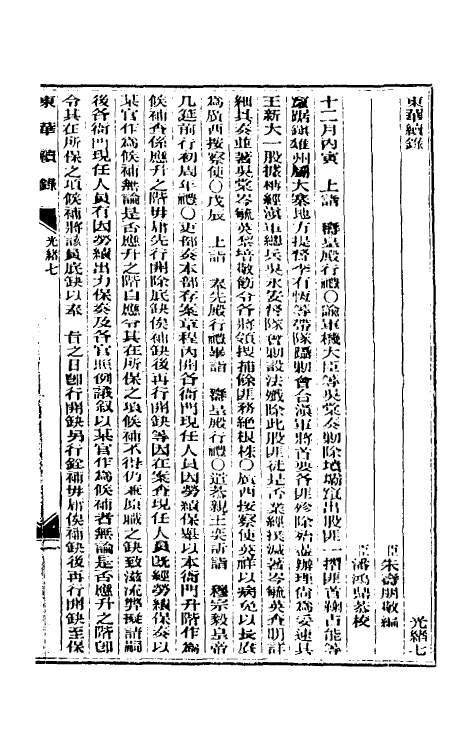 東華續錄　光緒七
臣朱壽朋敬編
臣潘鴻鼎恭校
十二月丙寅　上詣　壽皇殿行禮○諭軍機大臣等吳棠奏勦除墳壩竄出股匪一摺匪首鞠占能等
竄踞鎮雄州屬大寨地方提督李有恆等帶隊躡勦會合滇軍將首要各匪殄除殆盡辦理尚為妥速其
王新大一股據稱經滇軍總兵吳永安督隊會勦設法殲除此股匪徒是否業經撲滅著岑毓英查明詳
細具奏並著吳棠岑毓英黎培敬飭令各將領搜捕餘匪務絕根株○廣西按察使英祥以病免以長賡
為廣西按察使○戊辰　上詣　奉先殿行禮畢詣　壽皇殿行禮○遣恭親王奕訢詣　穆宗毅皇帝
几筵前行初周年禮○吏部奏本部奏定章程內開各衙門人員因勞績保舉以本衙門升階作為
候補查係應升之階毋庸先行開除底缺俟補缺後再行開缺等因在案查現任人員既經勞績保奏以
某官作為候補無論是否應升之階自應令其在所保之項候補不得仍兼原職之缺致滋流弊擬請嗣
後各衙門現任人員有因勞績出力保奏及各官照例議敘以某官作為候補者無論是否應升之階卽
令其在所保之項候補將該員底缺以奉　旨之日卽行開缺另行銓補毋庸俟補缺後再行開缺至保
東華續錄　光緒七